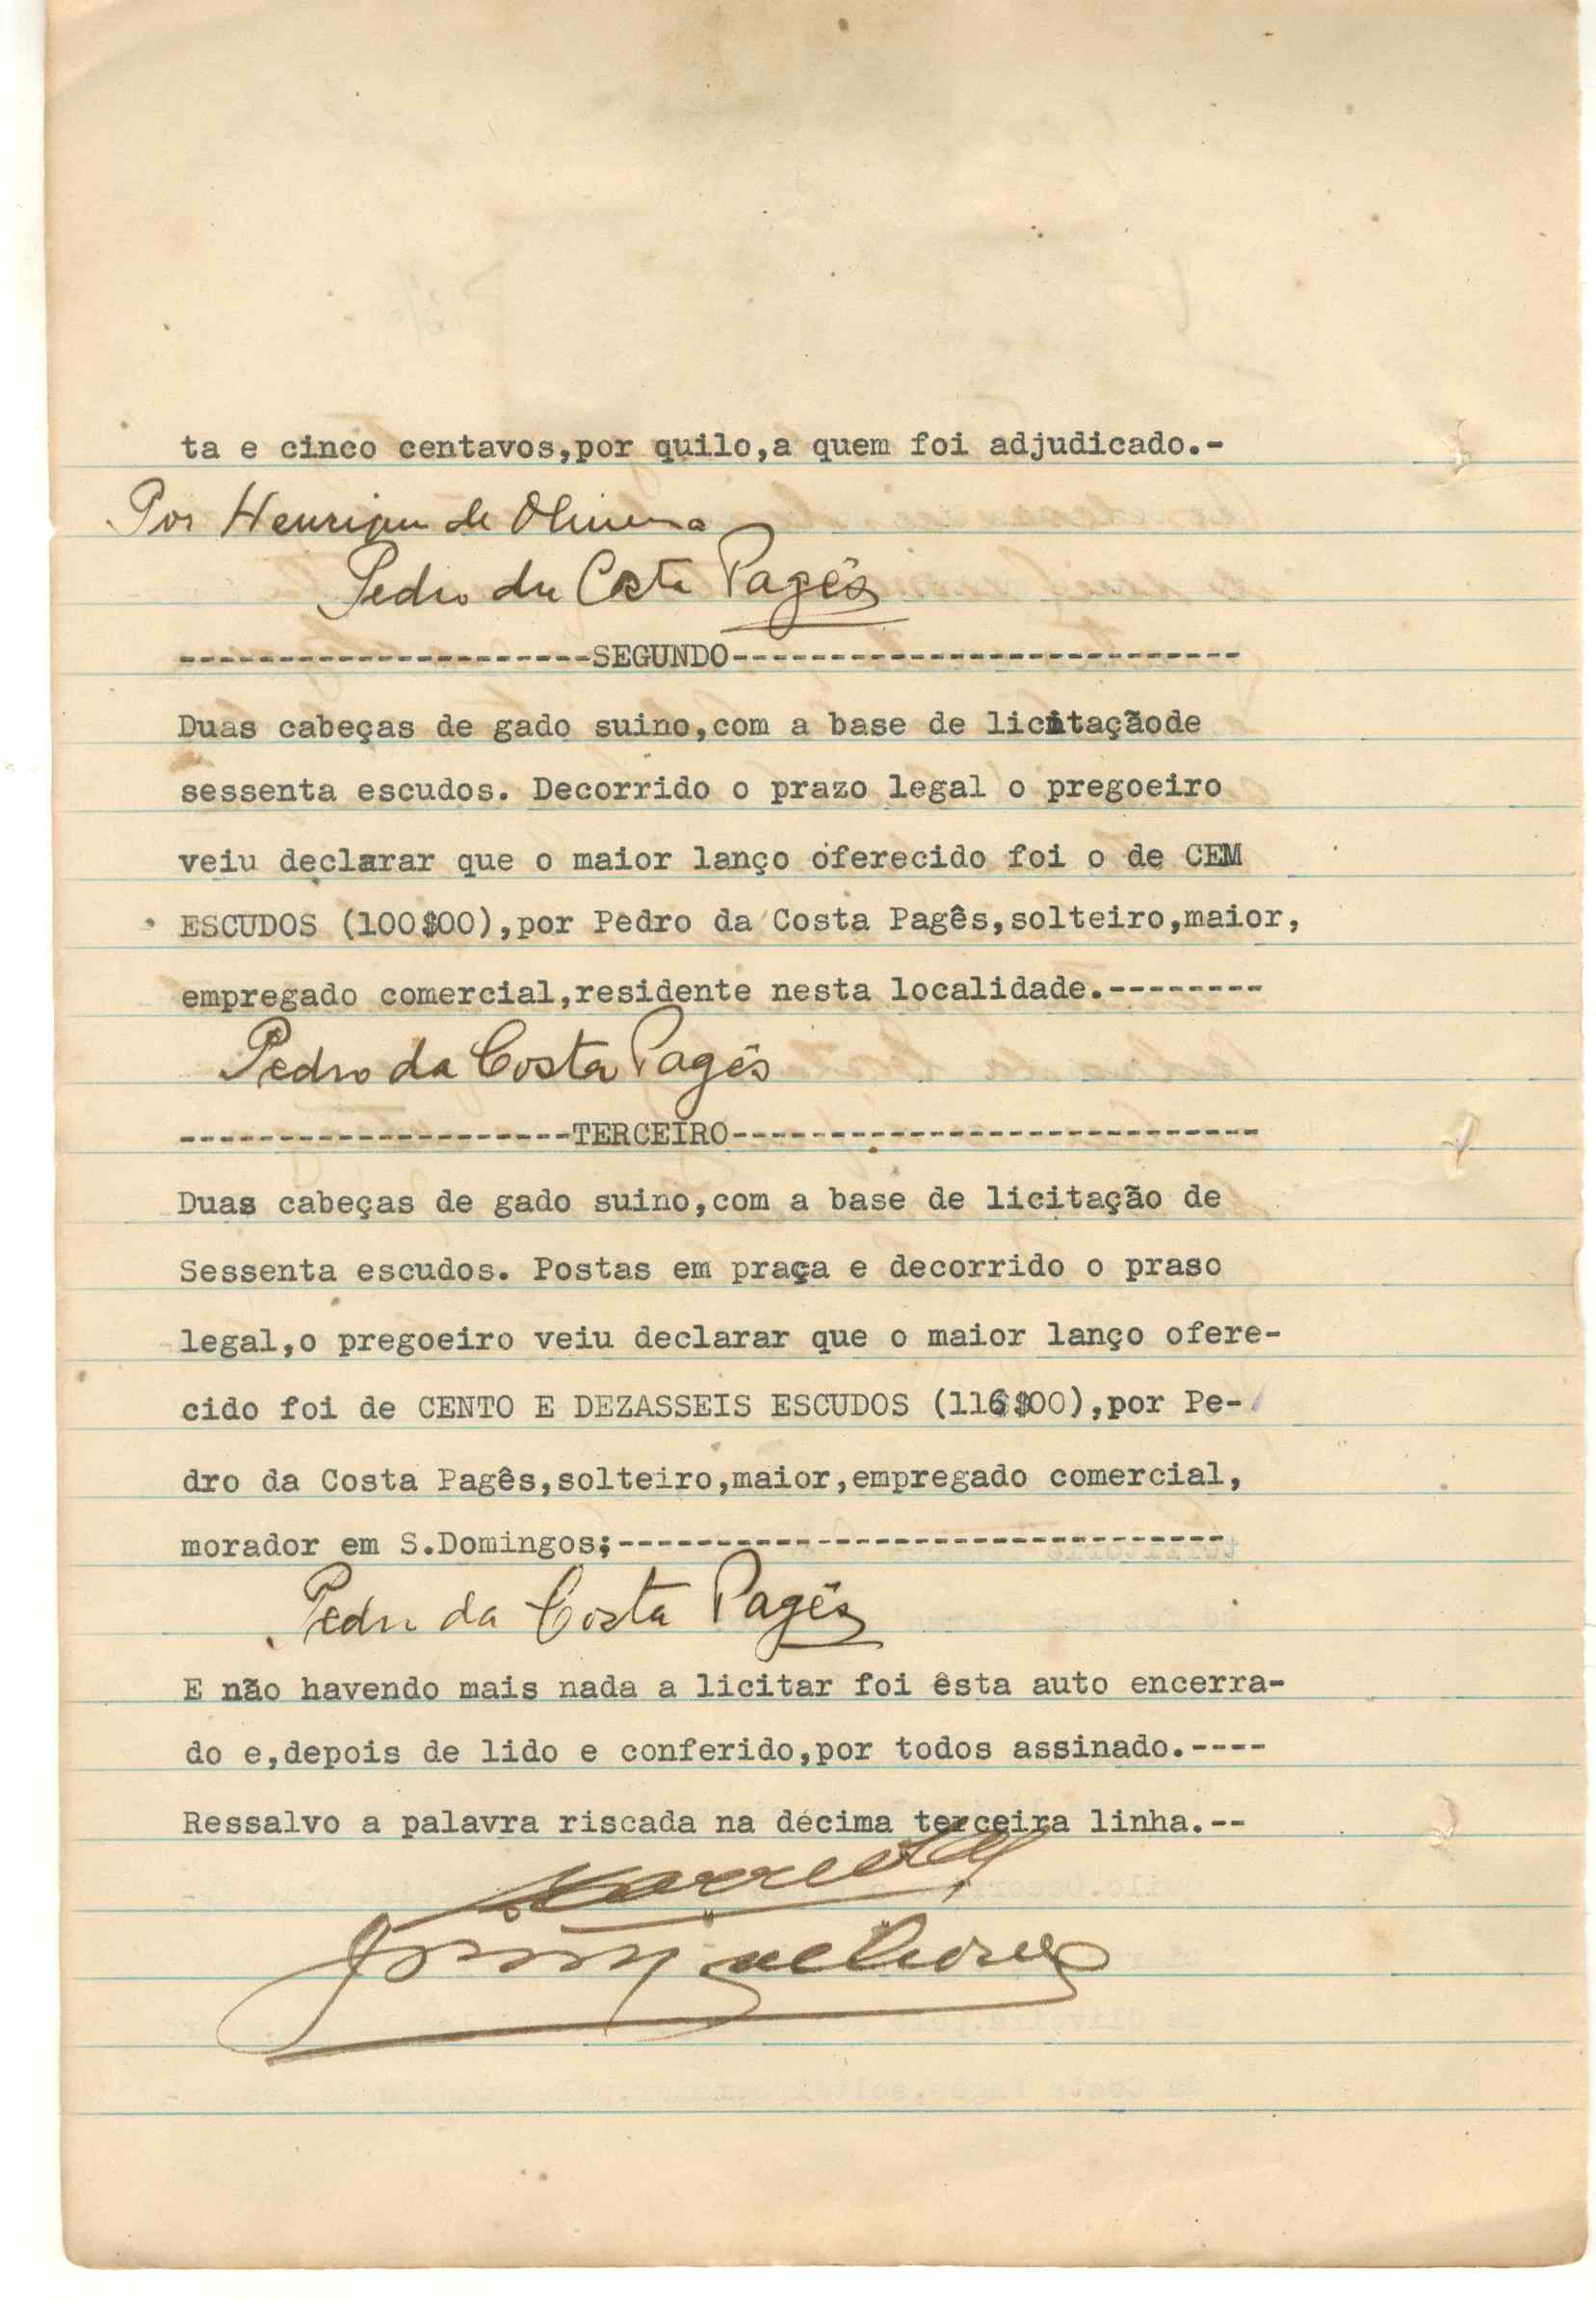 ta e cinco centavos,por quilo,a quem foi adjudicado.-
Por Henrique de Oliveira
Pedro da Costa Pagês
---------------------SEGUNDO--------------------------
Duas cabeças de gado suino,com a base de licitaçãode
sessenta escudos. Decorrido o prazo legal o pregoeiro
veiu declarar que o maior lanço oferecido foi o de CEM
ESCUDOS (100$00),por Pedro da Costa Pagês,solteiro,maior,
empregado comercial,residente nesta localidade.--------
Pedro da Costa Pagês
--------------------TERCEIRO---------------------------
Duas cabeças de gado suino,com a base de licitação de
Sessenta escudos. Postas em praça e decorrido o praso
legal,o pregoeiro veiu declarar que o maior lanço ofere-
cido foi de CENTO E DEZASSEIS ESCUDOS (116$00),por Pe-
dro da Costa Pagês,solteiro,maior,empregado comercial,
morador em S.Domingos;-------------------------------
Pedro da Costa Pagês
E não havendo mais nada a licitar foi êsta auto encerra-
do e,depois de lido e conferido,por todos assinado.----
Ressalvo a palavra riscada na décima terceira linha.--